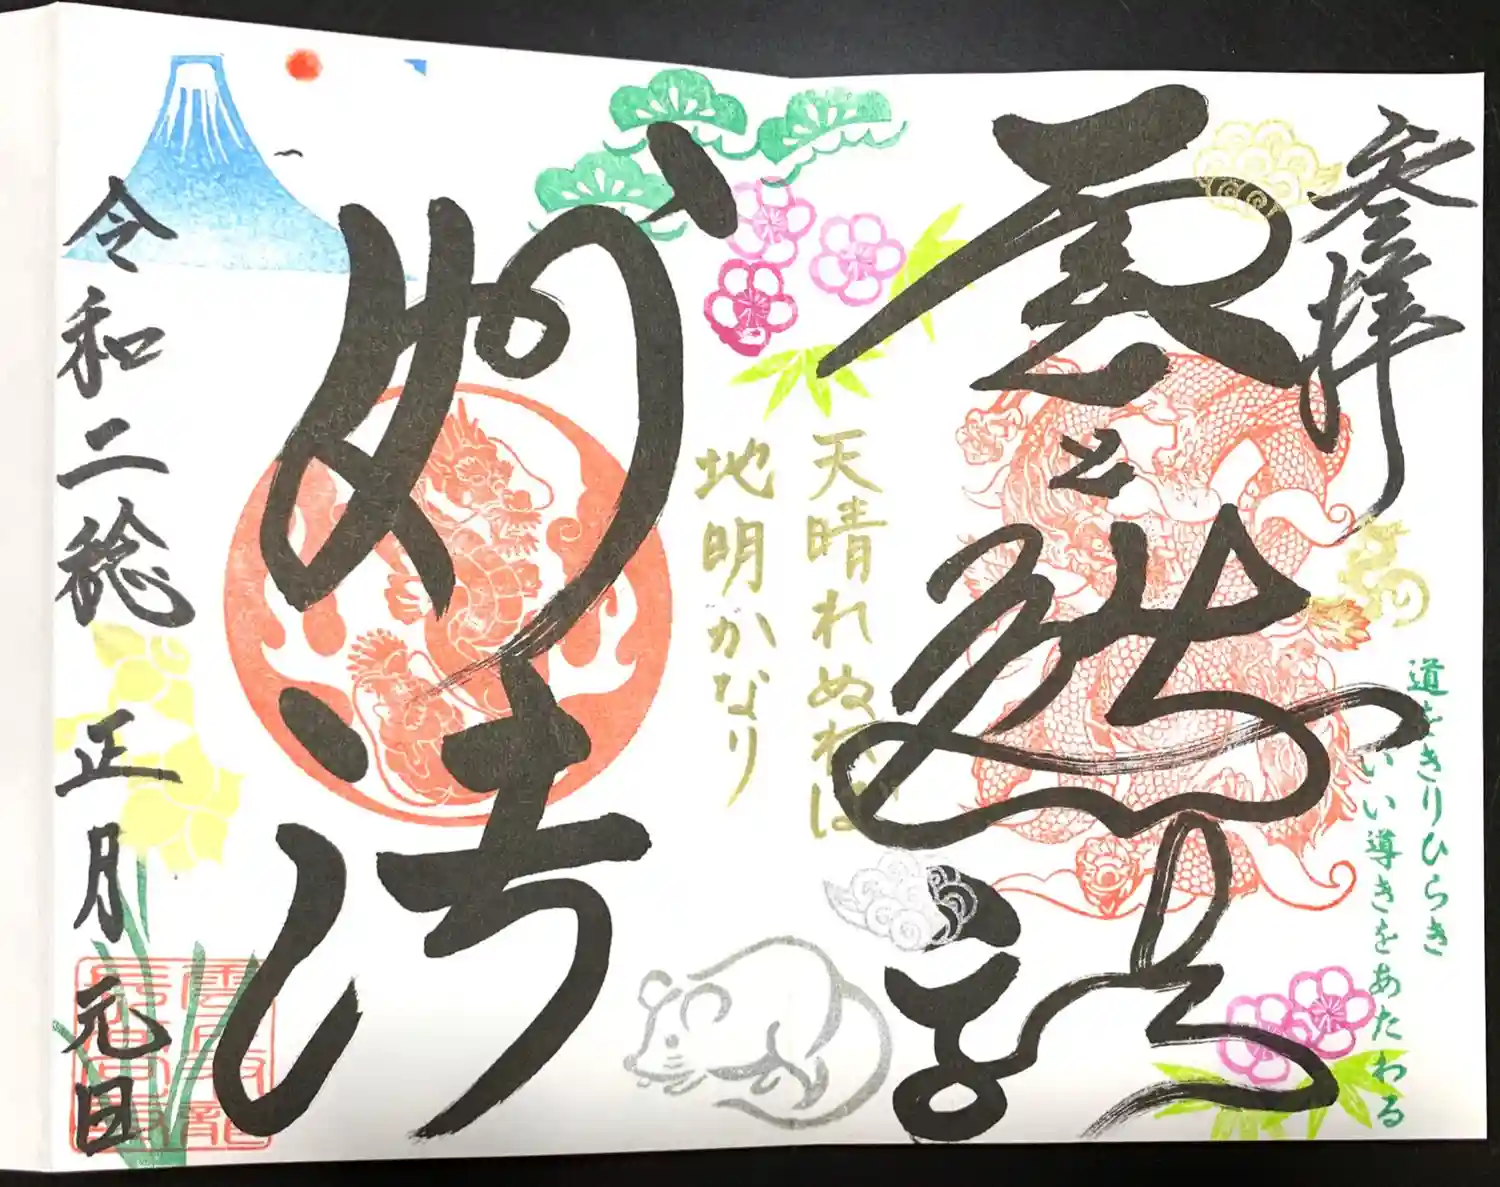 参拝
道をきりひらき
いい導きをあたわる
天晴れぬれば
地明かなり
妙法
令和二稔 正月 元旦